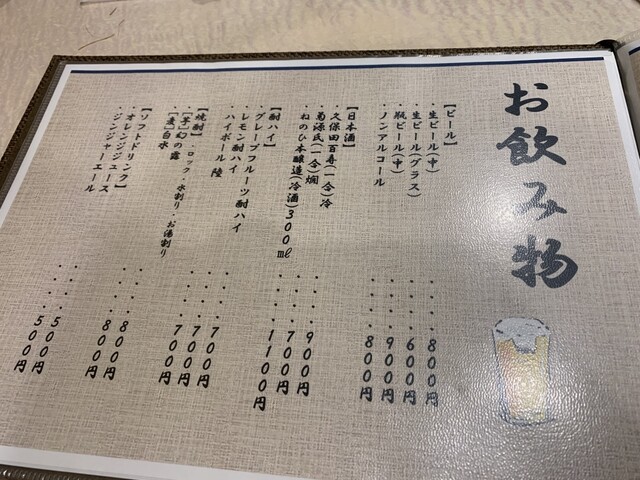 お飲み物
【ビール】
・生ビール(中)・・・・800円
・生ビール(グラス)・・・・600円
・瓶ビール(中)・・・・900円
・ノンアルコール・・・・800円
【日本酒】
・久保田百寿(一合)冷・・・・900円
・菊源氏(一合)燗・・・・700円
・ねのひ本醸造(冷酒)300㎖・・・・1100円
【酎ハイ】
・グレープフルーツ酎ハイ・・・・700円
・レモン酎ハイ・・・・700円
・ハイボール 陸・・・・700円
【焼酎】・ロック・水割り・お湯割り
・【芋】幻の露・・・・800円
・【麦】白水・・・・800円
【ソフトドリンク】
・オレンジジュース・・・・500円
・ジンジャーエール・・・・500円